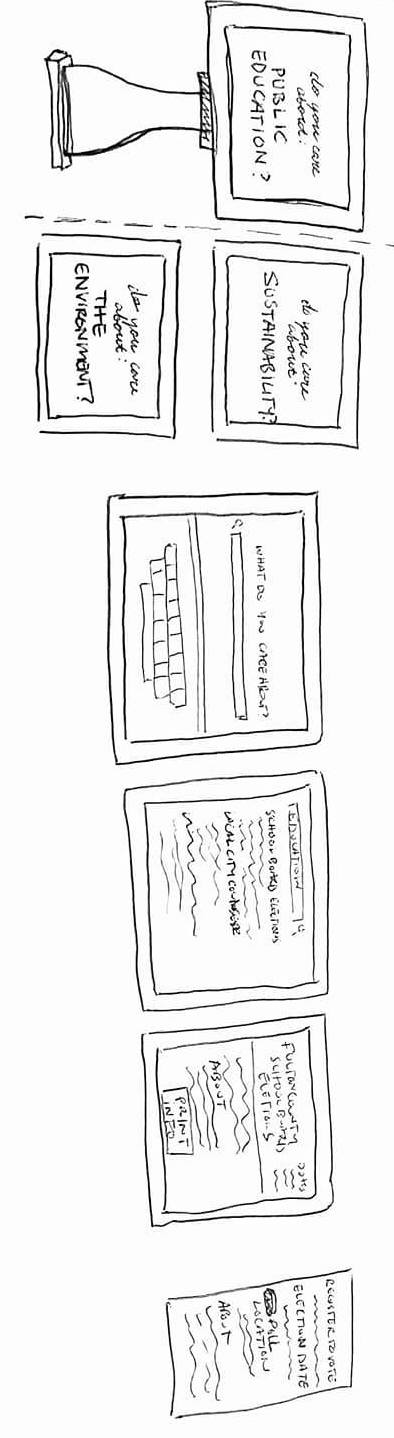 do you care
about:
PUBLIC
EDUCATION?
do you care
about:
SUSTAINABILITY?
do you care
about:
THE
ENVIRONMENT?
WHAT DO YOU CARE ABOUT?
EDUCATION
SCHOOL BOARD ELECTIONS
LOCAL CITY
FULTON COUNTY
SCHOOL BOARD
ELECTIONS
DATES
ABOUT
PRINT
INFO
REGISTER TO VOTE
ELECTION DATE
POLL
LOCATION
ABOUT